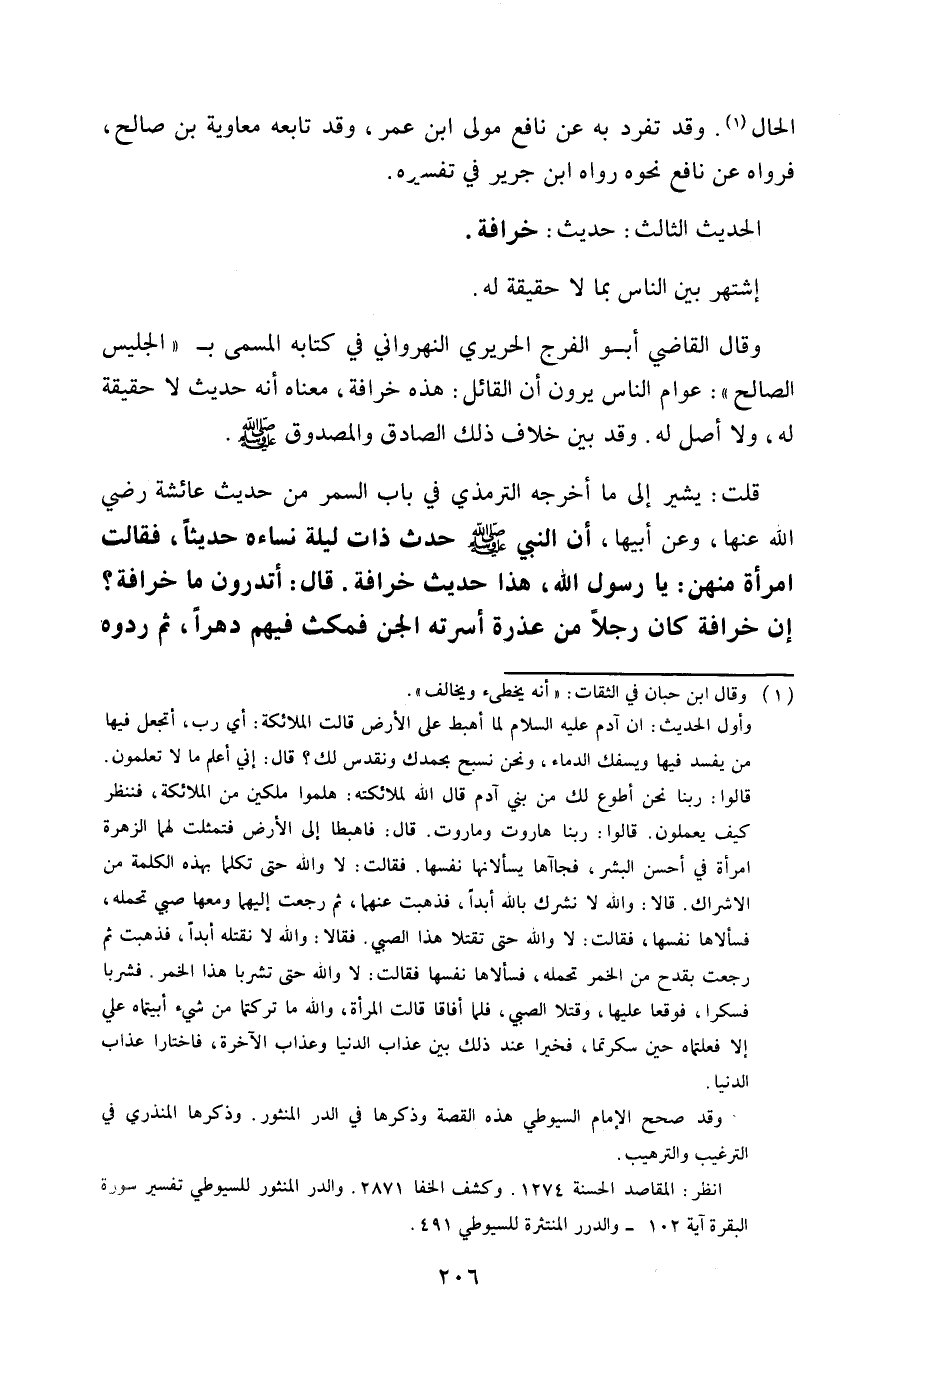 الحال (١). وقد تفرد به عن نافع مولى ابن عمر، وقد تابعه معاوية بن صالح،
فرواه عن نافع نحوه رواه ابن جرير في تفسيره.
الحديث الثالث: حديث: خرافة.
إشتهر بين الناس بما لا حقيقة له.
وقال القاضي أبو الفرج الحريري النهرواني في كتابه المسمى بـ « الجليس
الصالح»: عوام الناس يرون أن القائل: هذه خرافة، معناه أنه حديث لا حقيقة
له، ولا أصل له. وقد بين خلاف ذلك الصادق والمصدوق ﷺ.
قلت: يشير إلى ما أخرجه الترمذي في باب السمر من حديث عائشة رضي
الله عنها، وعن أبيها، أن النبي ﷺ حدث ذات ليلة نساءه حديثاً، فقالت
امرأة منهن: يا رسول الله، هذا حديث خرافة. قال: أتدرون ما خرافة؟
إن خرافة كان رجلاً من عذرة أسرته الجن فمكث فيهم دهراً، ثم ردوه
(١) وقال ابن حبان في الثقات: «أنه يخطىء ويخالف».
وأول الحديث: ان آدم عليه السلام لما أهبط على الأرض قالت الملائكة: أي رب، أتجعل فيها
من يفسد فيها ويسفك الدماء، ونحن نسبح بحمدك ونقدس لك؟ قال: إني أعلم ما لا تعلمون.
قالوا: ربنا نحن أطوع لك من بني آدم قال الله لملائكته: هلموا ملكين من الملائكة، فننظر
كيف يعملون. قالوا: ربنا هاروت وماروت. قال: فاهبطا إلى الأرض فتمثلت لهما الزهرة
امرأة في أحسن البشر، فجاآها يسألانها نفسها. فقالت: لا والله حتى تكلما بهذه الكلمة من
الاشراك. قالا: والله لا نشرك بالله أبداً، فذهبت عنهما، ثم رجعت إليهما ومعها صبي تحمله،
فسألاها نفسها، فقالت: لا والله حتى تقتلا هذا الصبي. فقالا: والله لا نقتله أبداً، فذهبت ثم
رجعت بقدح من الخمر تحمله، فسألاها نفسها فقالت: لا والله حتى تشربا هذا الخمر. فشربا
فسكرا، فوقعا عليها، وقتلا الصبي، فلما أفاقا قالت المرأة، والله ما تركتما من شيء أبيتماه علي
إلا فعلتماه حين سكرتما، فخيرا عند ذلك بين عذاب الدنيا وعذاب الآخرة، فاختارا عذاب
الدنيا.
وقد صحح الإمام السيوطي هذه القصة وذكرها في الدر المنثور. وذكرها المنذري في
الترغيب والترهيب.
انظر: المقاصد الحسنة ١٢٧٤. وكشف الخفا ٢٨٧١. والدر المنثور للسيوطي تفسير سورة
البقرة آية ١٠٢ - والدرر المنتثرة للسيوطي ٤٩١.
٢٠٦